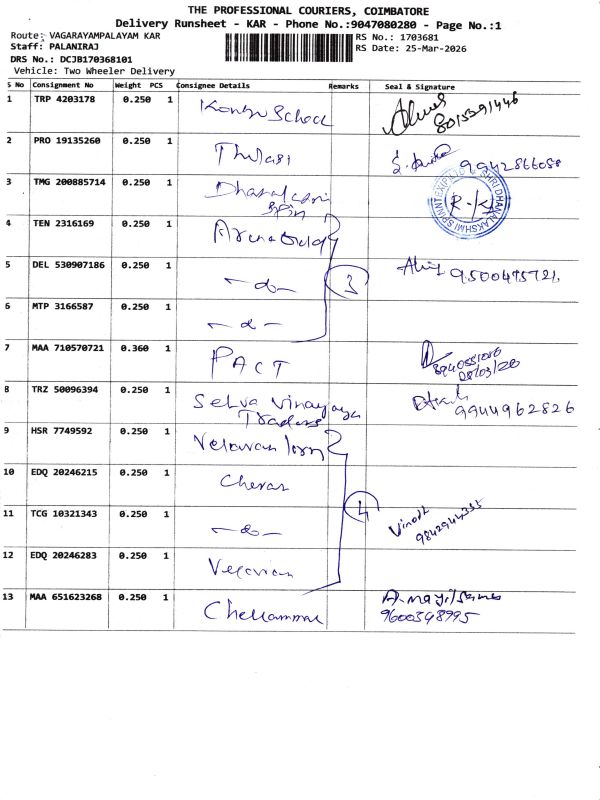 THE PROFESSIONAL COURIERS, COIMBATORE
Delivery Runsheet - KAR - Phone No.:9047080280 - Page No.:1
Route: VAGARAYAMPALAYAM KAR
RS No.: 1703681
Staff: PALANIRAJ
RS Date: 25-Mar-2026
DRS No.: DCJB170368101
Vehicle: Two Wheeler Delivery
S No Consignment No Weight PCS Consignee Details Remarks Seal & Signature
1 TRP 4203178 0.250 1 School 8015391446
2 PRO 19135260 0.250 1 Thulasi 9942866058
3 TMG 200885714 0.250 1 SHRI DHANALAKSHMI SPINNTEX (P) LTD R-K
4 TEN 2316169 0.250 1
5 DEL 530907186 0.250 1 -do- 3 9500475721
6 MTP 3166587 0.250 1 -do-
7 MAA 710570721 0.360 1 PACT
8 TRZ 50096394 0.250 1 Selva Vinayaga
Traders 9944962826
9 HSR 7749592 0.250 1 Velavan
10 EDQ 20246215 0.250 1 Cheran
11 TCG 10321343 0.250 1 -do- 4 Vinoth
9842944355
12 EDQ 20246283 0.250 1 Velavan
13 MAA 651623268 0.250 1 Chellammal
9600348995